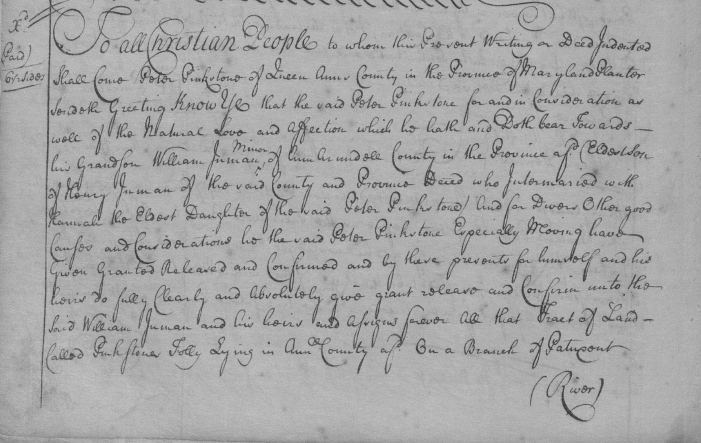 Xd
Paid
6 sides
To all Christian People to whom this Present Writing or Deed Indented
Shall Come Peter Pinkstone of Queen Anns County in the Province of Maryland Planter
Sendeth Greeting Know Ye that the said Peter Pinkstone for and in Consideration as
well of the Natural Love and Affection which he hath and Doth bear Towards —
his Grandson William Inman, Minor of Ann Arundell County in the Province afsd (Eldest Son
of Henry Inman of the said County and Province Deced who Intermaried with
Hannah the Eldest Daughter of the said Peter Pinkstone) And for Divers Other good
Causes and Considerations he the said Peter Pinkstone Especially Moving have
Given Granted Released and Confirmed and by these presents for himself and his
heirs do fully Clearly and Absolutely give grant release and Confirm unto the
Said William Inman and his heirs and Assigns forever All that Tract of Land —
Called Pinkstones Folly Lying in Annll County afsd On a Branch of Patuxent
(River)